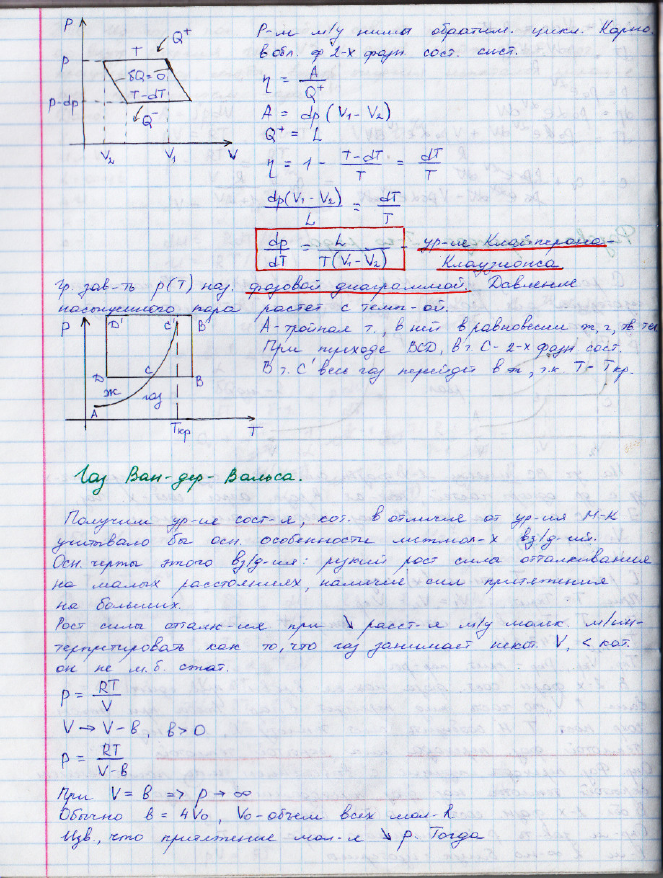 P
T
Q⁺
p
δQ=0
T-dT
p-dp
Q⁻
V₂
V₁
V
Р-м м/у ними обратим. цикл. Карно
в обл. ф 2-х фазн сост. сист.
η = A/Q⁺
A = dp(V₁-V₂)
Q⁺ = L
η = 1 - (T-dT)/T = dT/T
dp(V₁-V₂)/L = dT/T
dp/dT = L/T(V₁-V₂) - ур-ие Клайперона-
Клаузиоса
Гр. зав-ть p(T) наз. фазовой диаграммой. Давление
насыщенного пара растет с темп-ой.
P
D'
C'
B'
D
C
B
ж
газ
A
Tкр
T
А-тройная т., в ней в равновесии ж, г, тв. те
При переходе BCD, в т. С - 2-х фазн сост.
В т. С' весь газ перейдет в ж, т.к. T = Tкр.
Газ Ван-дер-Вальса.
Получим ур-ие сост-я, кот. в отличие от ур-ия М-К
учитывало бы осн. особенности межмол-х вз/д-ий.
Осн. черты этого вз/д-ия: резкий рост силы отталкивания
на малых расстояниях, наличие сил притяжения
на больших.
Рост силы отталк-ия при ↘ расст-я м/у молек. м/ин-
терпретировать как то, что газ занимает некот. V, < кот.
он не м.б. сжат.
p = RT/V
V → V-в, в>0
p = RT/(V-в)
При V = в => p → ∞
Обычно в = 4V₀, V₀-объем всех мол-л
Изв., что притяжение мол-л ↘ p. Тогда